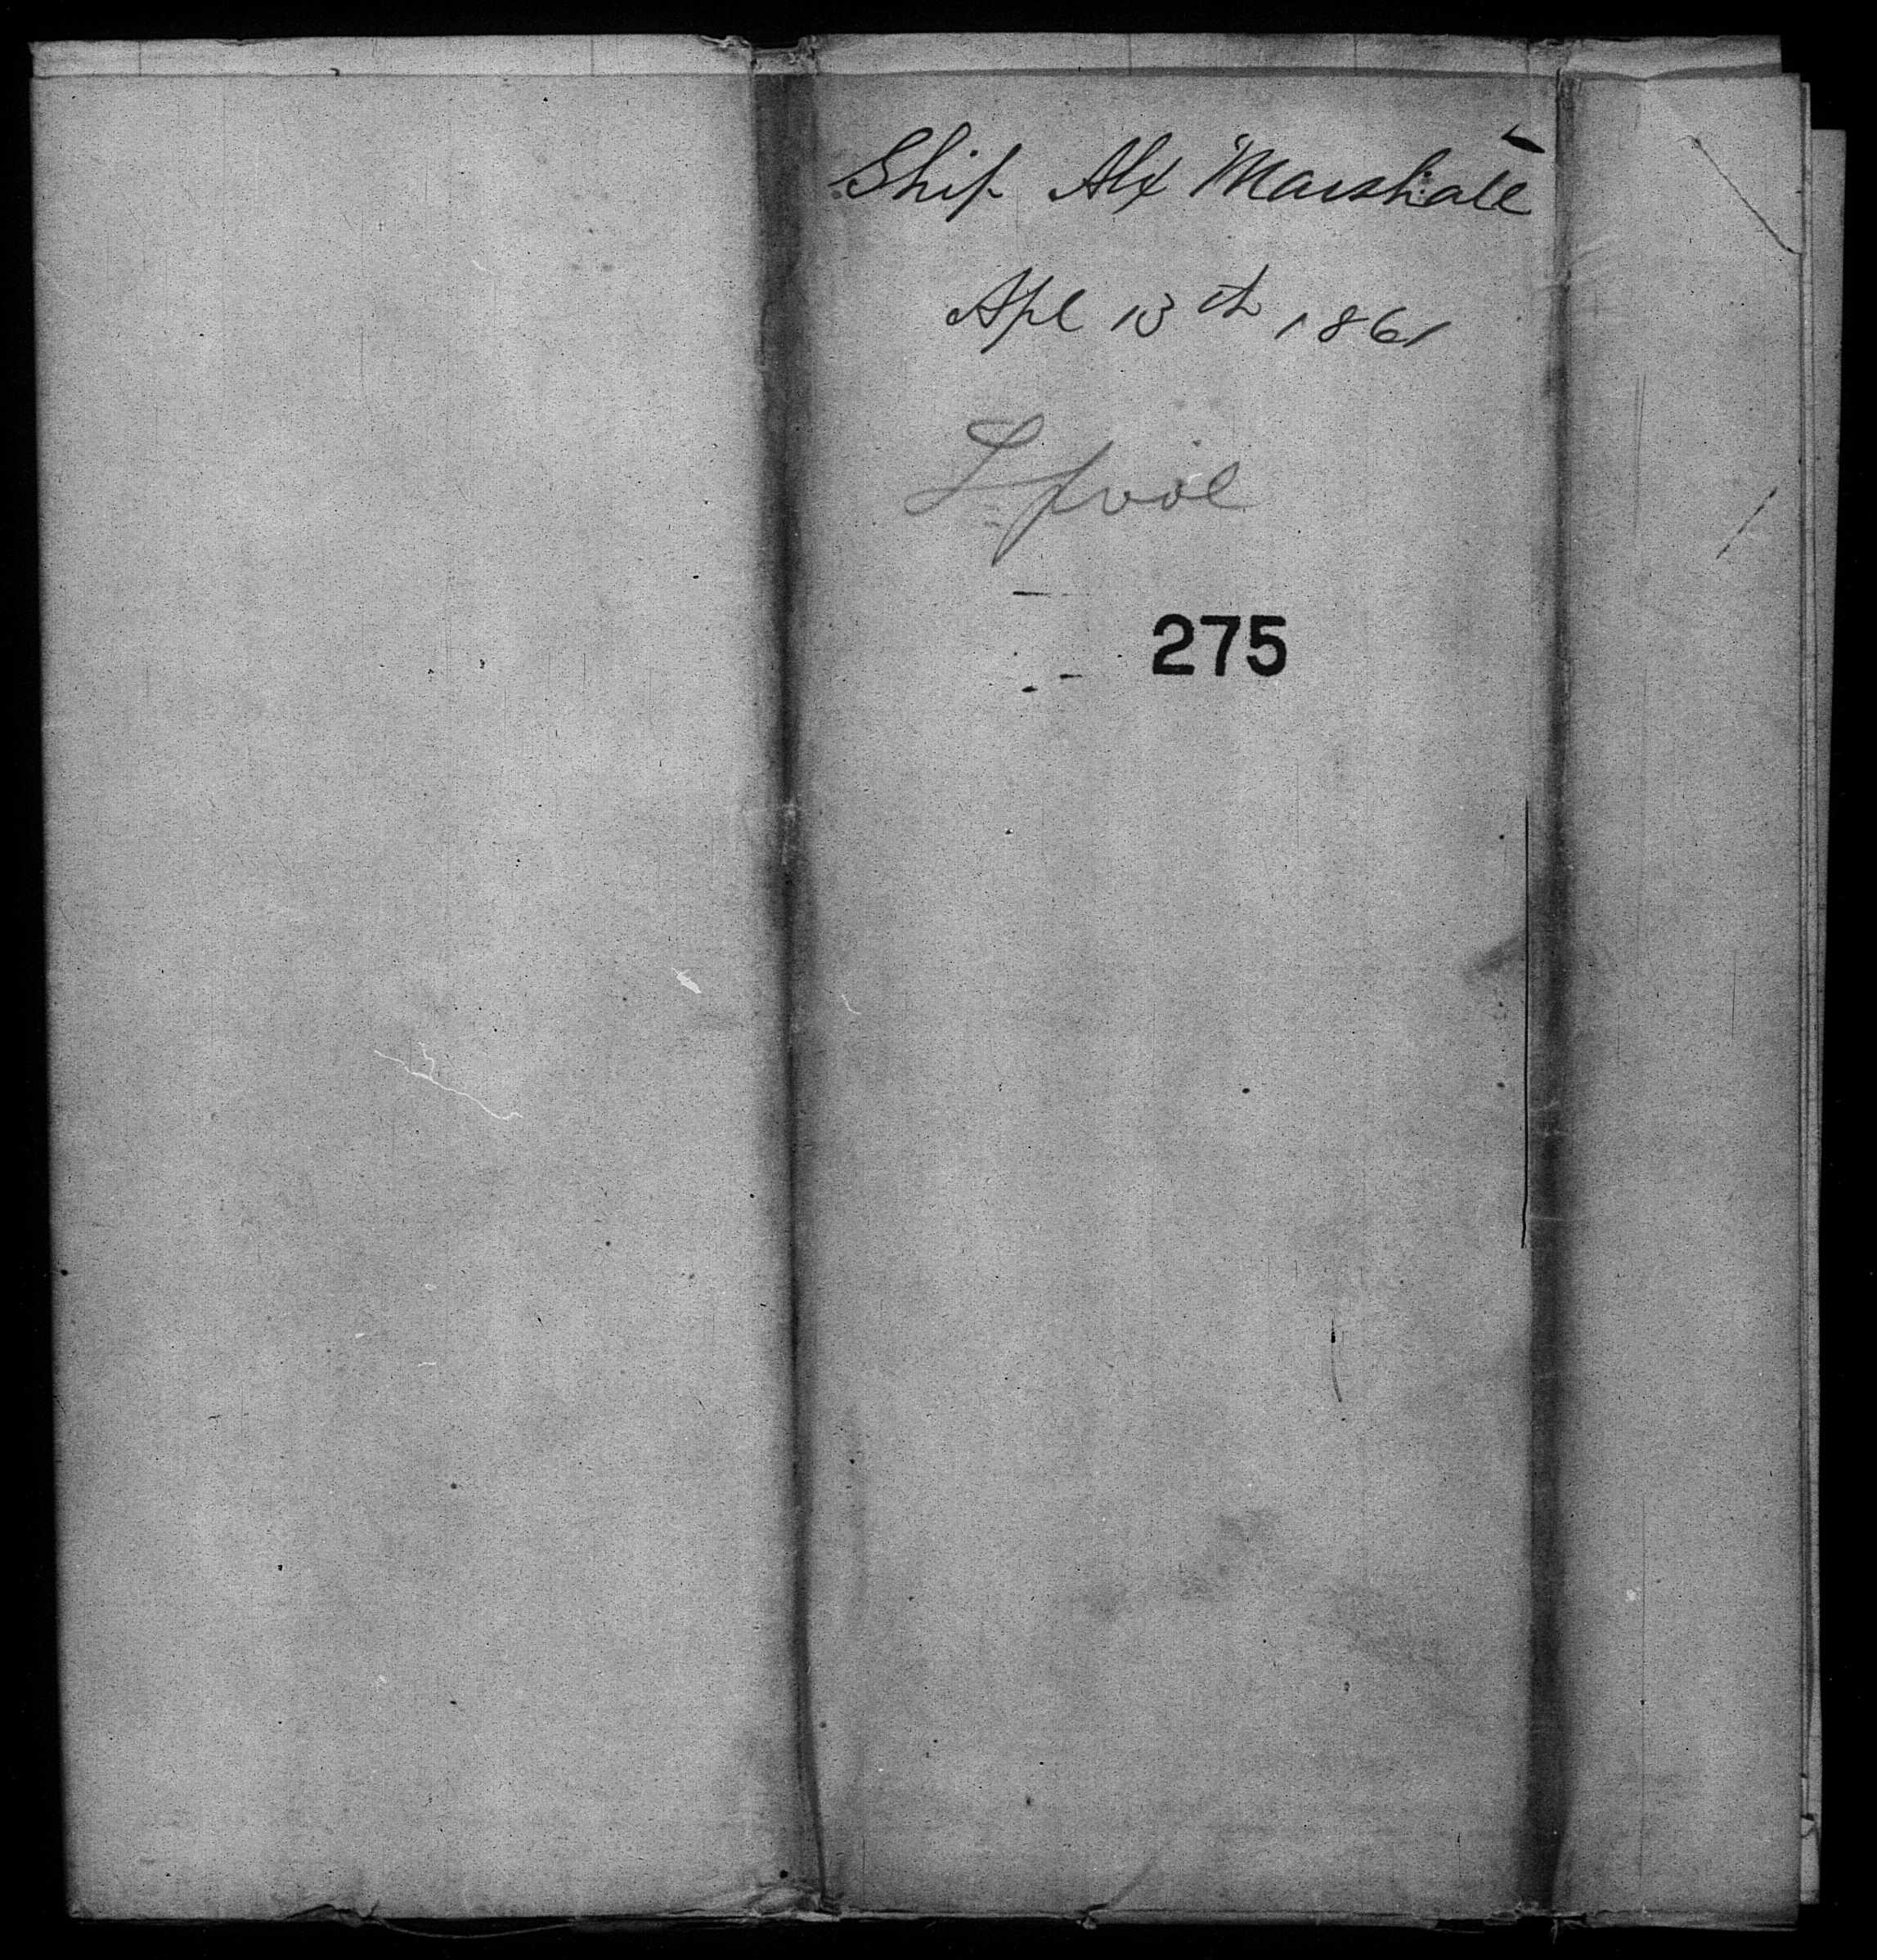 Ship Alx Marshall
Apl 13th 1861
Lpool
275